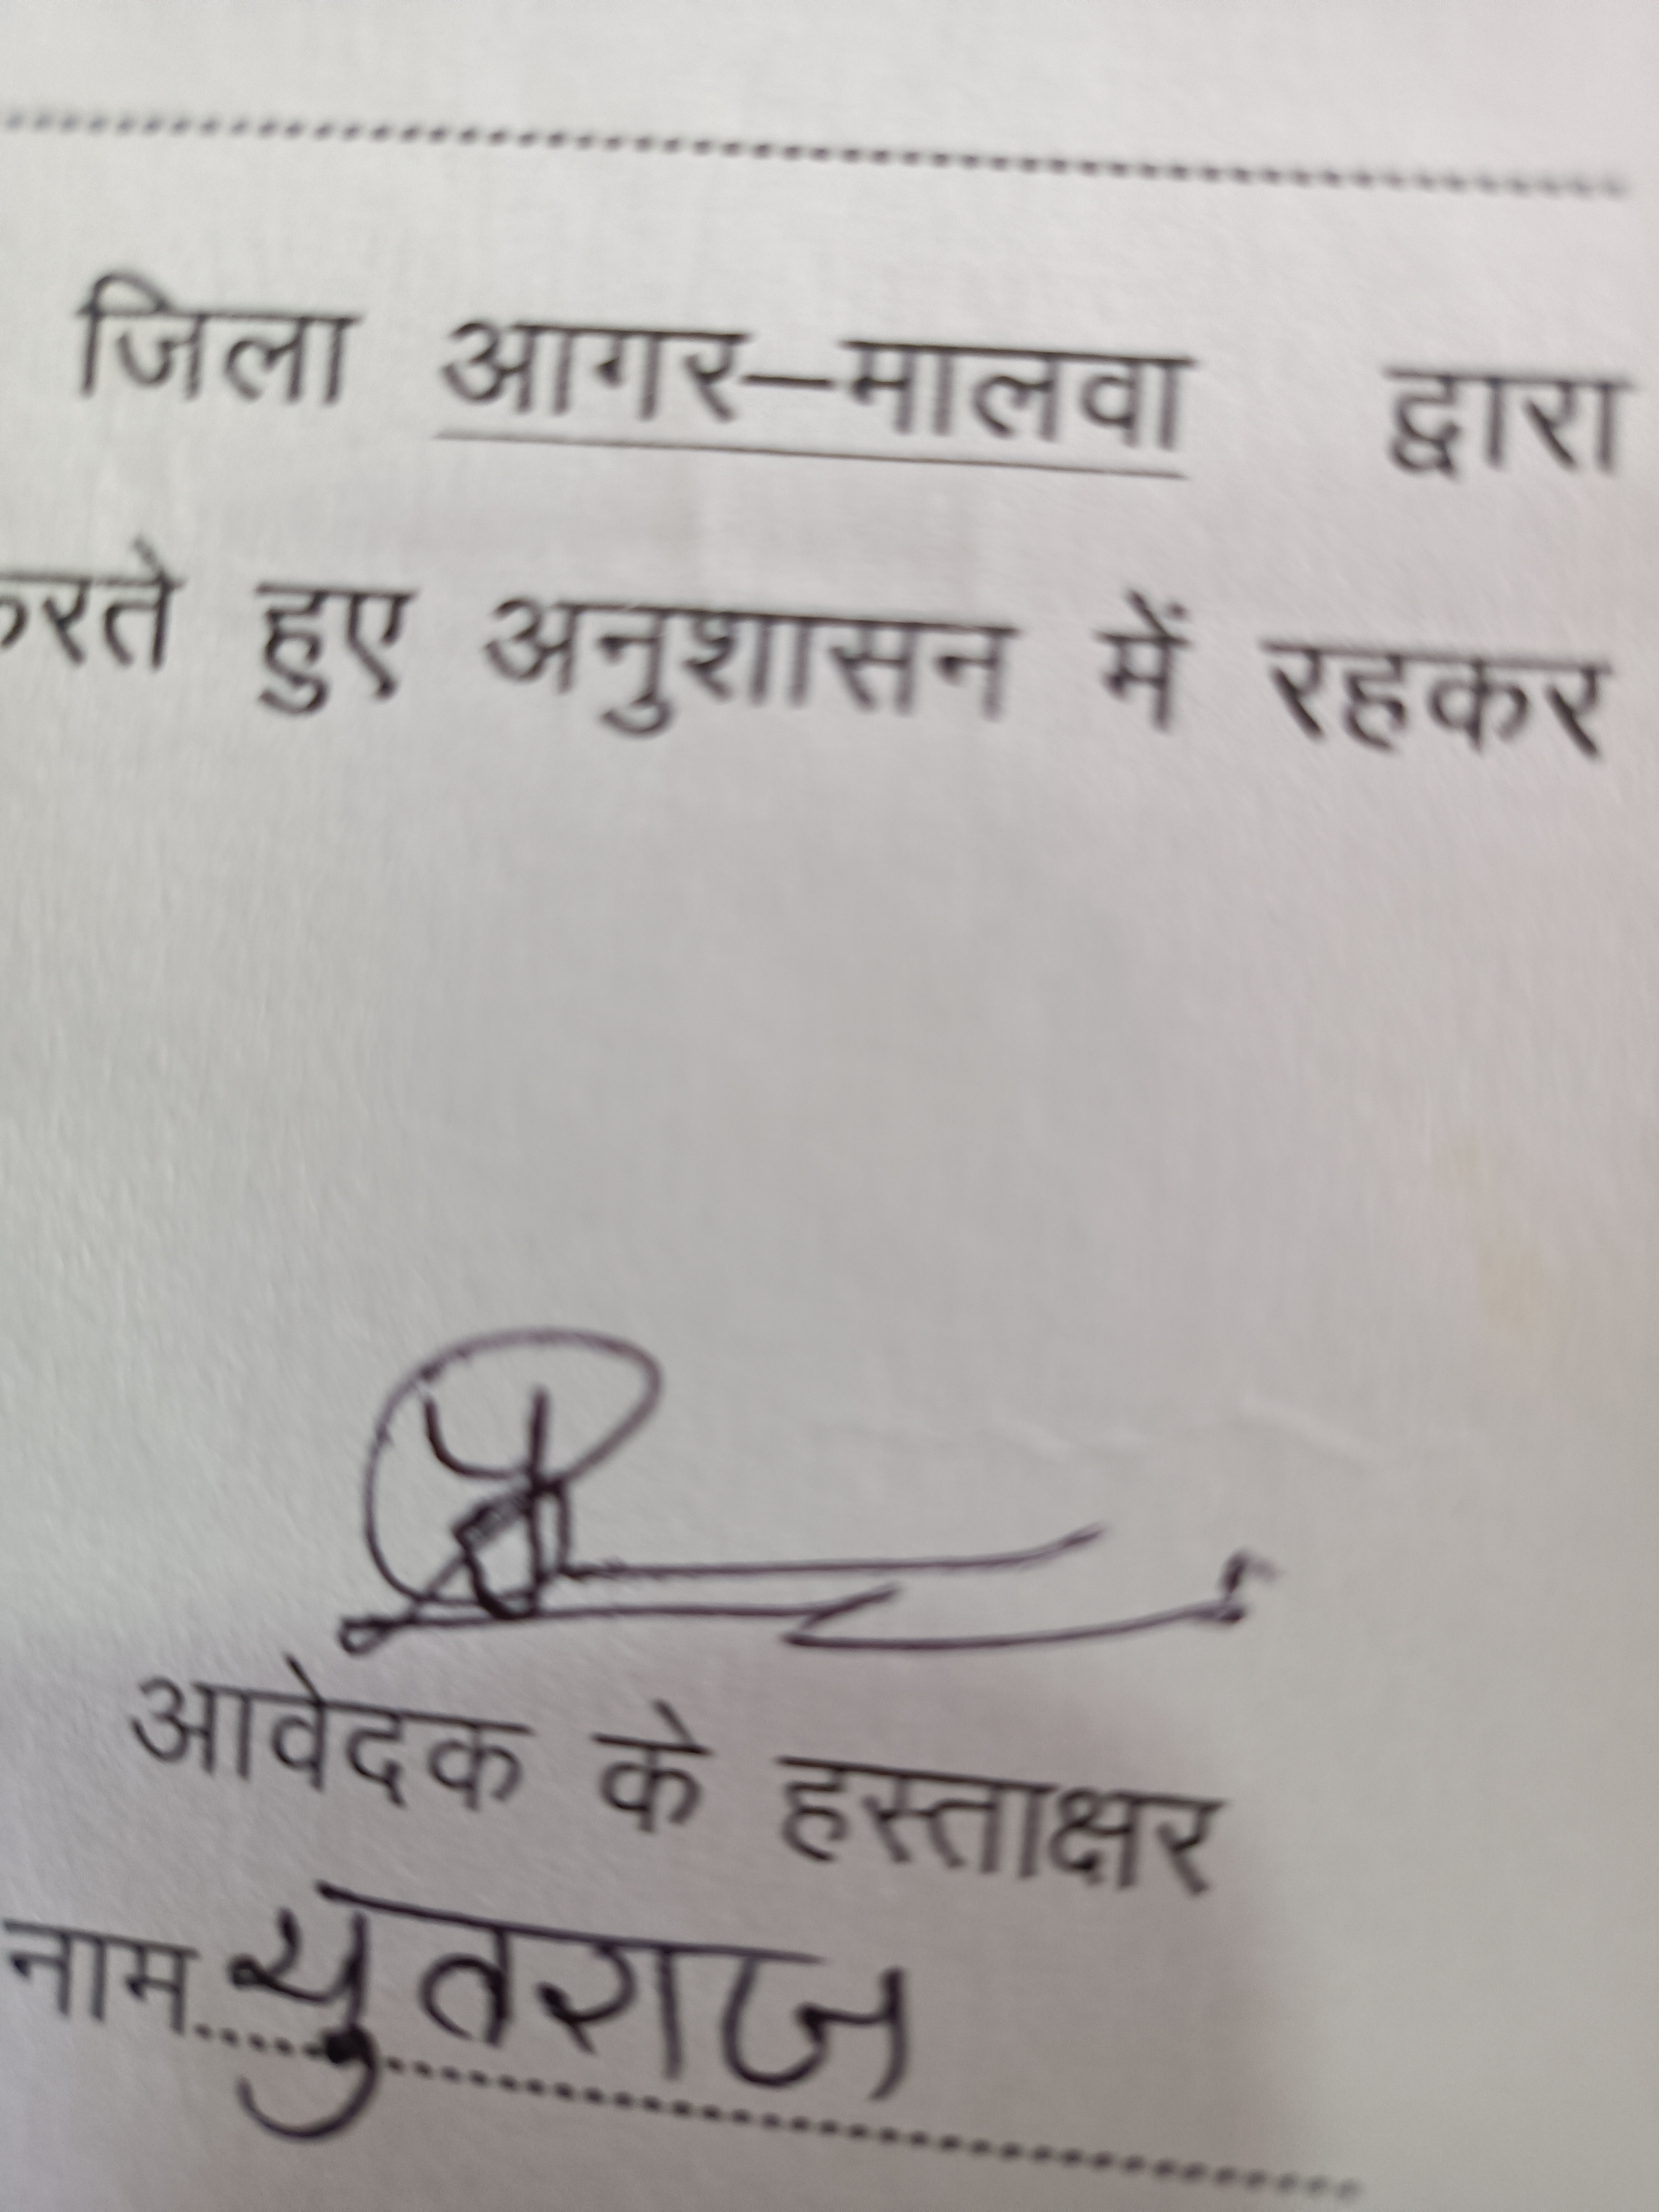 जिला आगर–मालवा द्वारा
करते हुए अनुशासन में रहकर
आवेदक के हस्ताक्षर
नाम युवराज